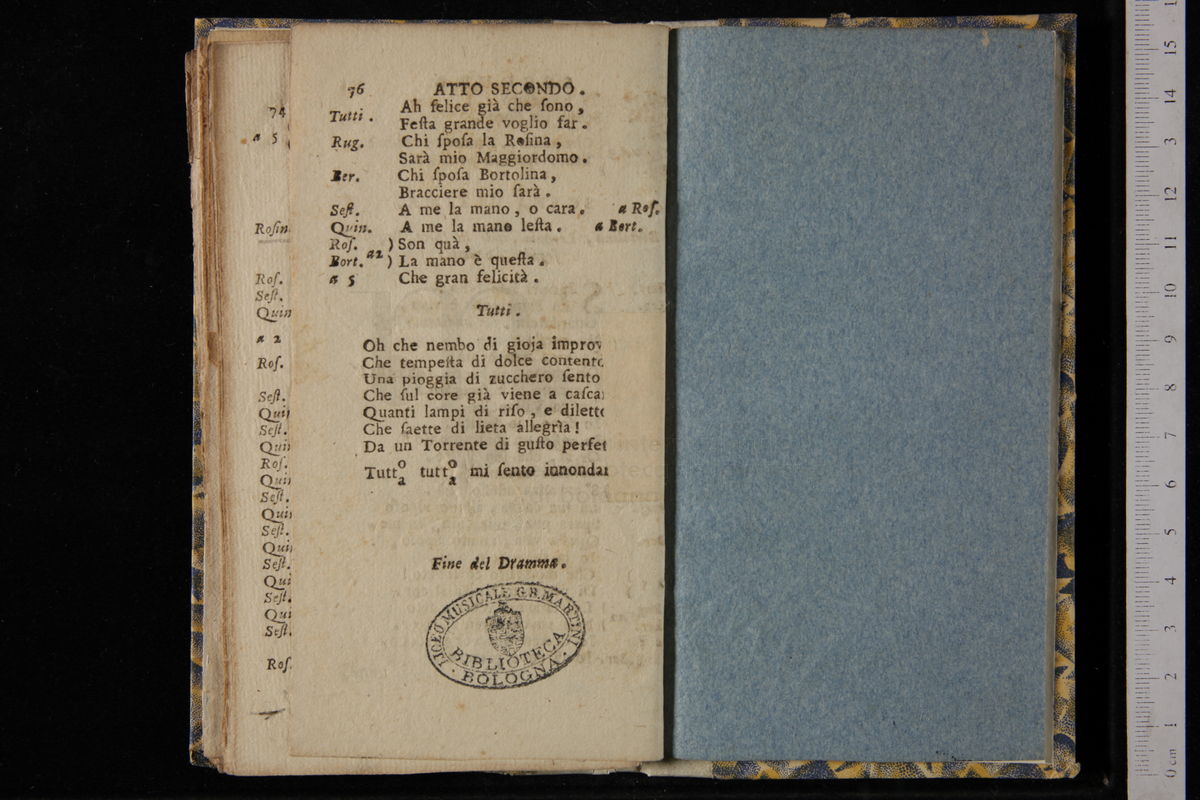 76 ATTO SECONDO.
Tutti. Ah felice già che ſono,
Feſta grande voglio far.
Rug. Chi ſpoſa la Roſina,
Sarà mio Maggiordomo.
Ber. Chi ſpoſa Bortolina,
Bracciere mio ſarà.
Seſt. A me la mano, o cara. a Roſ.
Quin. A me la mano leſta. a Bort.
Roſ. ) Son quà,
Bort. a2 ) La mano è queſta.
a 5 Che gran felicità.
Tutti.
Oh che nembo di gioja improv
Che tempeſta di dolce contento
Una pioggia di zucchero ſento
Che ſul core già viene a caſca
Quanti lampi di riſo, e dilett
Che ſaette di lieta allegrìa!
Da un Torrente di guſto perfet
Tutt o/a tutt o/a mi ſento innonda
Fine del Dramma.
LICEO MUSICALE G.B. MARTINI
BIBLIOTECA
· BOLOGNA ·
74
a 5
Roſin
Roſ.
Seſt.
Quin
a 2
Roſ.
Seſt.
Qui
Seſt.
Qui
Roſ.
Qui
Seſt.
Qui
Seſt.
Qui
Seſt.
Qui
Seſt.
Qui
Seſt.
Roſ.
15
14
13
12
11
10
9
8
7
6
5
4
3
2
1
0 cm